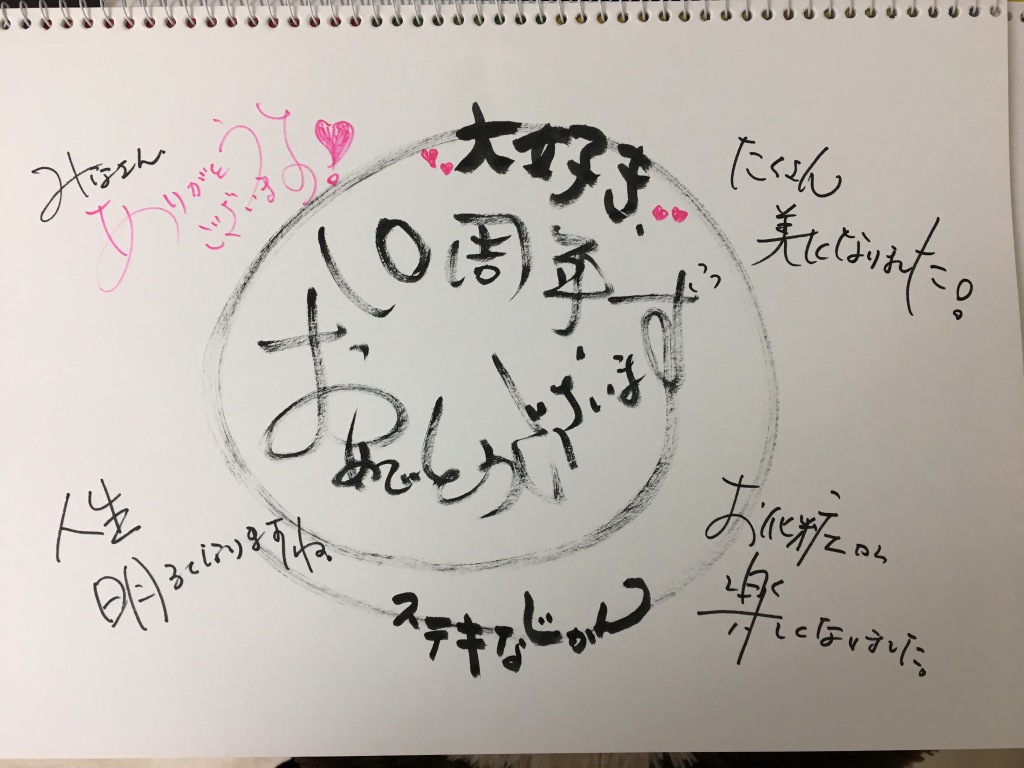 みなさん
ありがとう
ございま
す!
大好き
10周年
おめでとうございます
たくさん
美になりました!
人生
明るくなりますね
お化粧が
楽しくなりました。
ステキなじかん